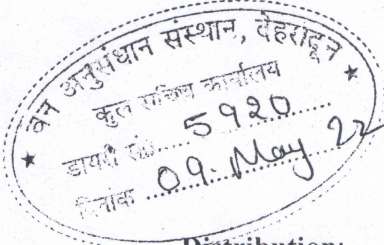 वन अनुसंधान संस्थान, देहरादून
कुल सचिव कार्यालय
डायरी सं०.....5920.....
दिनांक.....09. May 22
Distribution: